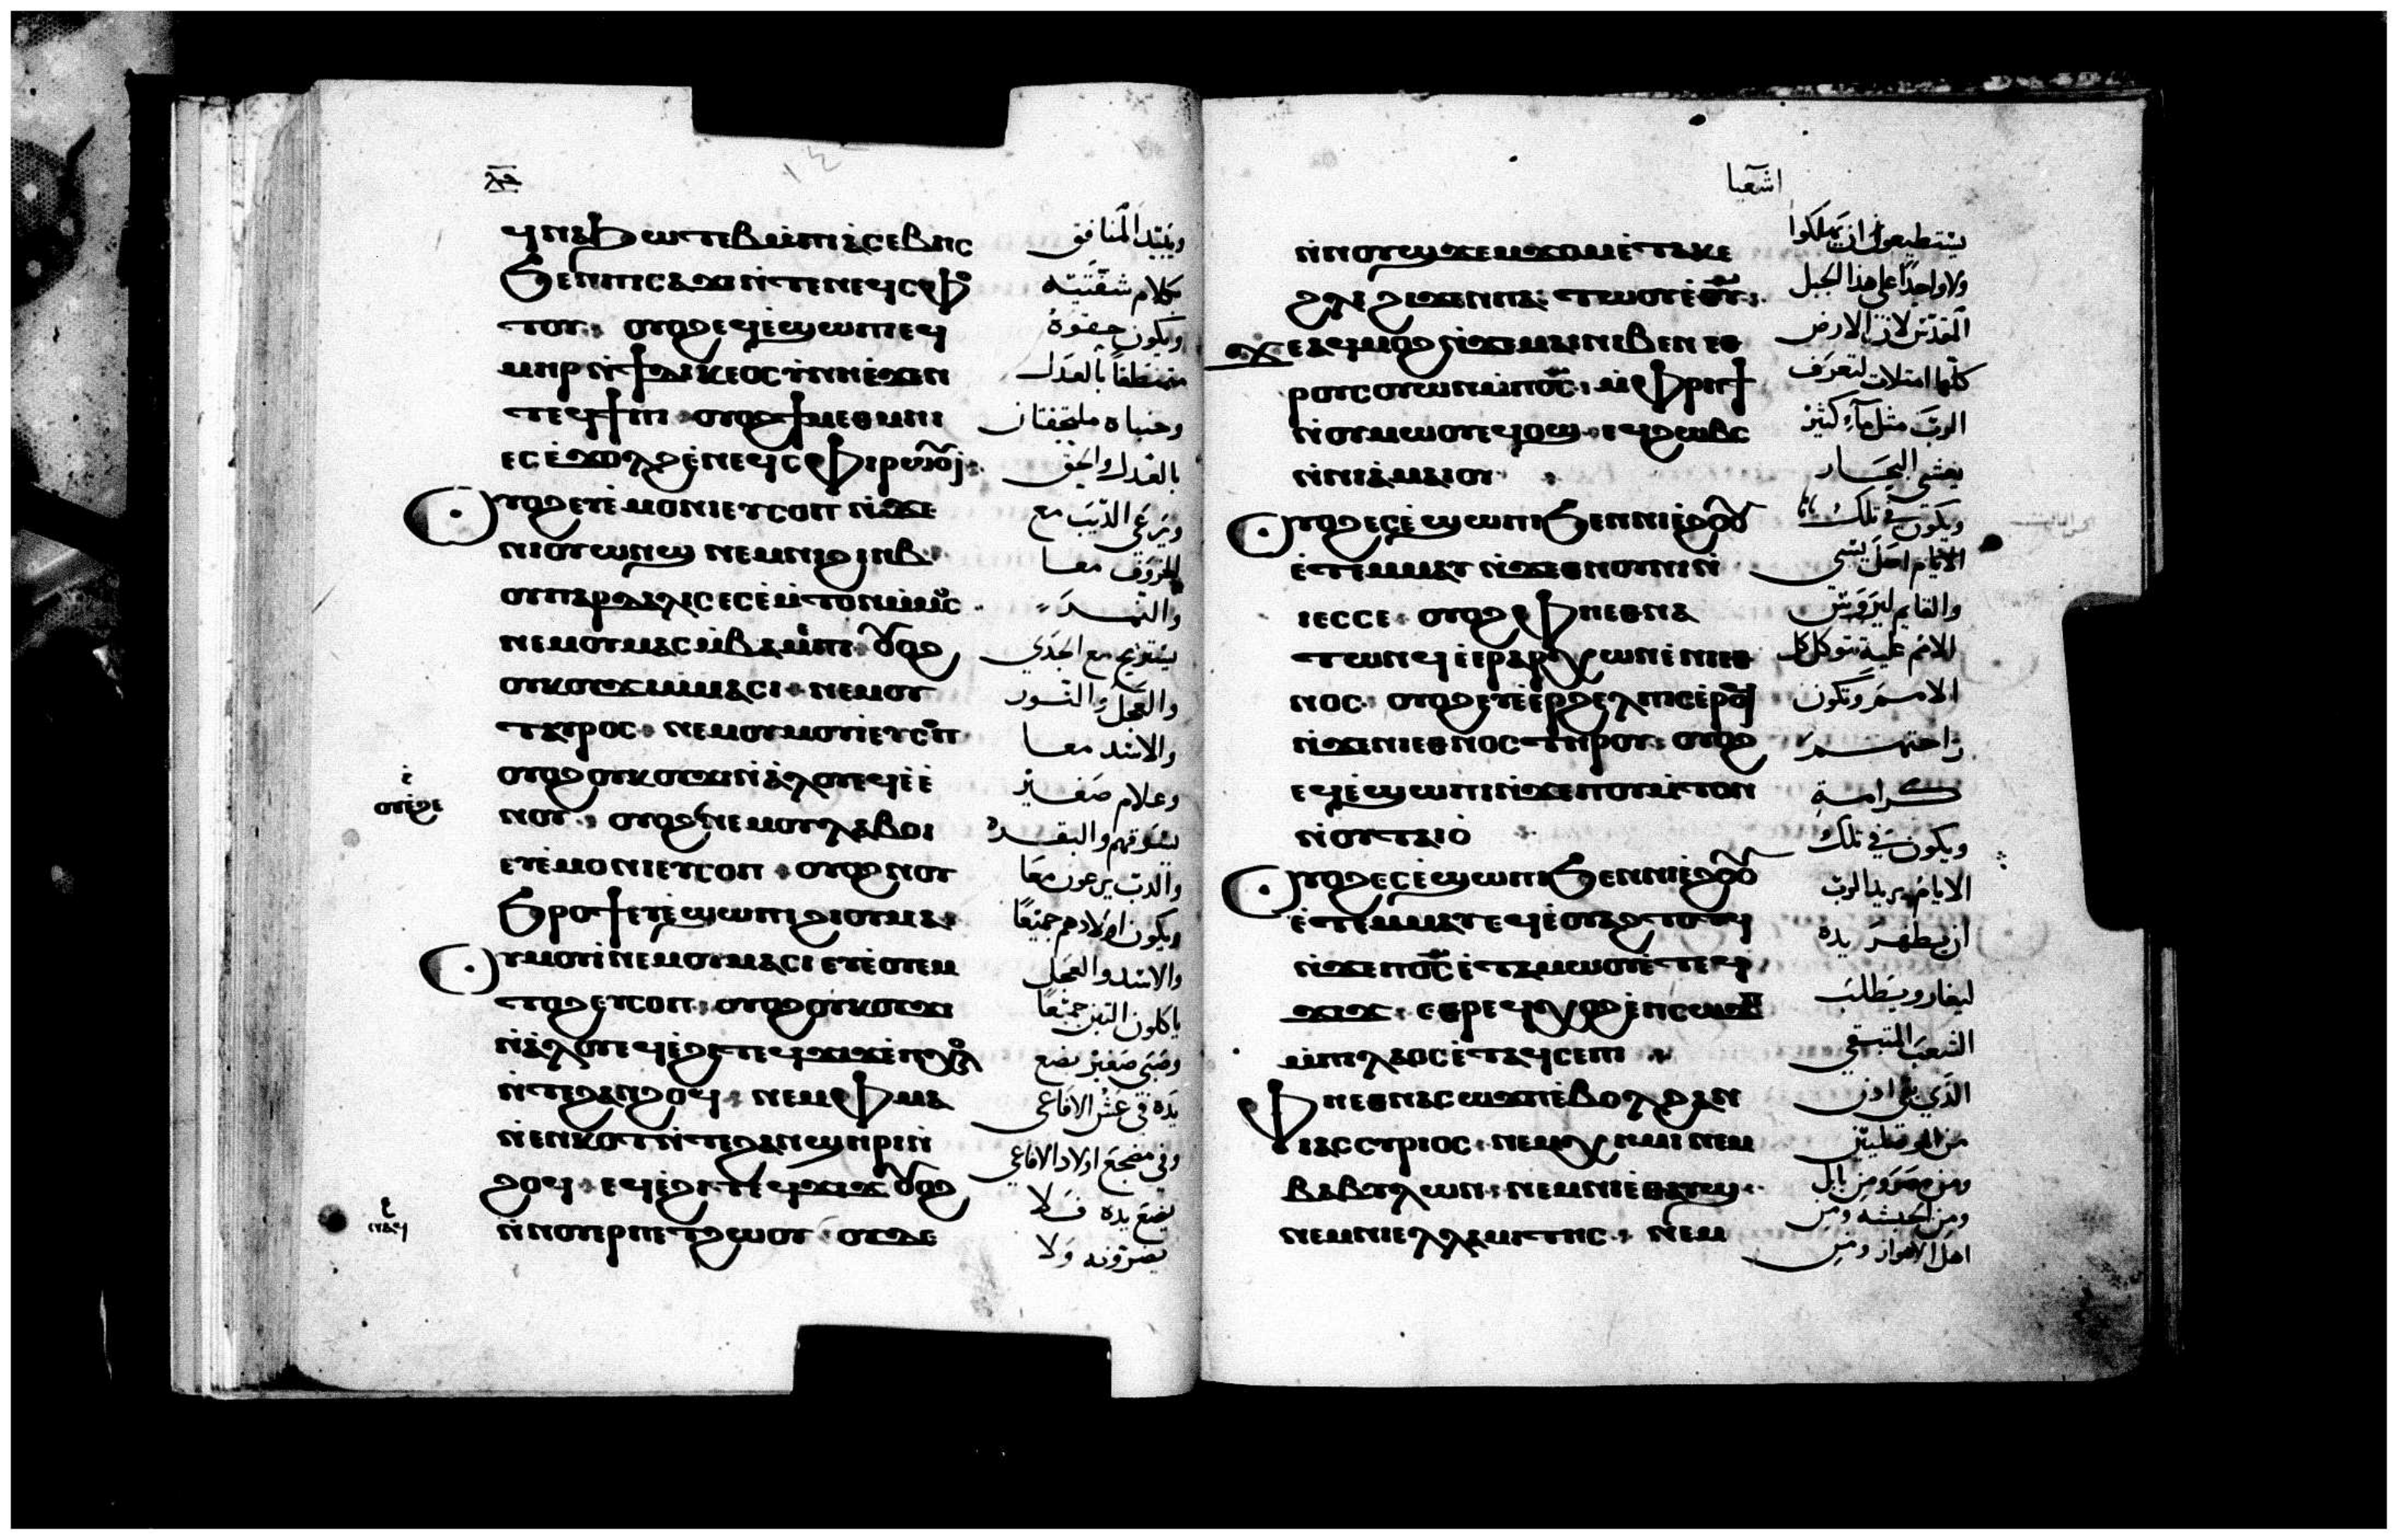 ⲗⲍ
ϥⲛⲁϧⲱⲧⲉⲃ ⲙ̀ⲡⲓⲁⲥⲉⲃⲏⲥ
ϧⲉⲛⲡⲓⲥⲁϫⲓ ⲛ̀ⲧⲉⲛⲉϥⲥⲫⲟ
ⲧⲟⲩ. ⲟⲩⲟϩ ⲉϥⲉ̀ϣⲱⲡⲉϥ
ⲙⲏⲣ ⲛ̀ϯⲇⲓⲕⲉⲟⲥⲩⲛⲏ ⲉ̀ϫⲉⲛ
ⲧⲉϥϯⲡⲓ ⲟⲩⲟϩ ϯⲙⲉⲑⲙⲏⲓ
ⲉⲥⲉ̀ϫⲟⲗϩ ⲉ̀ⲛⲉϥⲥⲫⲓⲣⲱⲟⲩⲓ
Ⲟⲩⲟϩ ⲉⲩⲉ̀ⲙⲟⲛⲓ ⲉⲩⲥⲟⲡ ⲛ̀ϫⲉ
ⲛⲓⲟⲩⲱⲛϣ ⲛⲉⲙⲛⲓϩⲓⲏⲃ
ⲟⲩⲡⲁⲣⲇⲁⲗⲓⲥ ⲉⲥⲉ̀ⲙ̀ⲧⲟⲛ ⲙ̀ⲙⲟⲥ
ⲛⲉⲙⲟⲩⲙⲁⲥ ⲙ̀ⲃⲁⲉⲙⲡⲓ ⲟⲩⲟϩ
ⲟⲩⲕⲟⲩϫⲓ ⲙ̀ⲙⲁⲥⲓ ⲛⲉⲙⲟⲩ
ⲧⲁⲩⲣⲟⲥ ⲛⲉⲙⲟⲩⲙⲟⲩⲓ ⲉⲩⲥⲟⲡ
ⲟⲩⲟϩ ⲟⲩⲕⲟⲩϫⲓ ⲛ̀ⲁⲗⲟⲩ ⲉϥⲉ̀ⲉ̀
ⲛⲟⲩ. ⲟⲩⲟϩ ⲛⲉⲙⲟⲩⲗⲁⲃⲟⲓ
ⲉⲩⲉ̀ⲙⲟⲛⲓ ⲉⲩⲥⲟⲡ ⲟⲩⲟϩ ⲛⲟⲩ
ϧⲣⲟϯ ⲉⲩⲉ̀ϣⲱⲡⲓ ϩⲓⲟⲩⲙⲁ
Ⲟⲩⲙⲟⲩⲓ ⲛⲉⲙⲟⲩⲙⲁⲥⲓ ⲉⲩⲉ̀ⲟⲩⲉⲙ
ⲧⲟϩ ⲉⲩⲥⲟⲡ ⲟⲩⲟϩ ⲟⲩⲕⲟⲩϫⲓ
ⲛ̀ⲁⲗⲟⲩ ⲉϥⲉ̀ϩⲓ ⲧⲉϥϫⲓϫ ⲉ̀ⲡⲭⲟⲗ
ⲛ̀ⲧⲉϩⲁⲛϩⲟϥ ⲛⲉⲙ ⲫⲙⲁ
ⲛ̀ⲉⲛⲕⲟⲧ ⲛ̀ⲧⲉϩⲁⲛϣⲏⲣⲓ ⲛ̀
ϩⲟϥ ⲉϥⲉ̀ϩⲓ ⲧⲉϥϫⲓϫ ⲟⲩⲟϩ
ⲛ̀ⲛⲟⲩⲉⲣⲡⲉⲧϩⲱⲟⲩ ⲟⲩⲇⲉ
ويبيد المنافق
بكلام شفتيه
ويكون حقوه
متمنطقا بالعدل
وجنباه ملتحفتان
بالعدل والحق
ويرعى الديب مع
الخروف معا
والنمر
يستريح مع الجدي
والعجل والثور
والاسد معا
وغلام صغير
يسوقهم والبقر
والدب يرعون معا
ويكون اولادهم جميعا
والاسد والعجل
ياكلون التبن جميعا
وصبي صغير يضع
يده في عش الافاعي
وفي مضجع اولاد الافاعي
يضع يده فلا
يضرونه ولا
اشعيا
ⲛ̀ⲛⲟⲩϣϫⲉⲙϫⲟⲙ ⲉ̀ⲧⲁⲕⲉ
ϩⲗⲓ ϩⲓϫⲉⲛ ⲡⲁⲓⲧⲱⲟⲩ ⲉ̀ⲑⲩ
ϫⲉ ⲁϥⲙⲟϩ ⲛ̀ϫⲉⲙⲁⲓ ⲛⲓⲃⲉⲛ ⲉⲑ
ⲣⲟⲩⲥⲟⲩⲱⲛ ⲙ̀ⲡⲟⲥ̅ ⲙ̀ⲫⲣⲏϯ
ⲛ̀ⲟⲩⲙⲱⲟⲩ ⲉϥⲟϣ ⲉϥϩⲱⲃⲥ
ⲛ̀ⲛⲓⲁ̀ⲙⲁⲓⲟⲩ
Ⲟⲩⲟϩ ⲉⲥⲉ̀ϣⲱⲡⲓ ϧⲉⲛⲛⲓⲉ̀ϩⲟⲟⲩ
ⲉ̀ⲧⲉⲙⲙⲁⲩ ⲛ̀ϫⲉⲑⲛⲟⲩⲛⲓ ⲛ̀
ⲓⲉⲥⲥⲉ ⲟⲩⲟϩ ⲫⲏⲉⲑⲛⲁ
ⲧⲱⲛϥ ⲉ̀ⲉⲣⲁⲣⲭⲱⲛ ⲉ̀ⲛⲓⲉⲑ
ⲛⲟⲥ ⲟⲩⲟϩ ⲉⲩⲉ̀ⲉⲣϩⲉⲗⲡⲓⲥ ⲉ̀ⲣⲟϥ
ⲛ̀ϫⲉⲛⲓⲉⲑⲛⲟⲥ ⲧⲏⲣⲟⲩ ⲟⲩⲟϩ
ⲉϥⲉ̀ϣⲱⲡⲓ ⲛ̀ϫⲉⲡⲟⲩⲙ̀ⲧⲟⲛ
ⲛ̀ⲟⲩⲧⲁⲓⲟ̀
Ⲟⲩⲟϩ ⲉⲥⲉ̀ϣⲱⲡⲓ ϧⲉⲛⲛⲓⲉ̀ϩⲟⲟⲩ
ⲉ̀ⲧⲉⲙⲙⲁⲩ ⲉϥⲉ̀ⲟⲩⲁϩⲧⲟⲧϥ
ⲛ̀ϫⲉⲡⲟⲥ̅ ⲉ̀ⲧⲁⲙⲱⲟⲩ ⲉ̀ⲧⲉϥ
ϫⲓϫ ⲉⲑⲣⲉϥⲭⲟϩ ⲉ̀ⲡⲥⲱϫⲡ
ⲙ̀ⲡⲓⲗⲁⲟⲥ ⲉ̀ⲧⲁϥⲥⲉⲡⲓ
Ⲫⲏⲉⲑⲛⲁⲥⲱϫⲡ ⲉ̀ⲃⲟⲗϩⲁⲛ
ⲓⲁⲥⲥⲩⲣⲓⲟⲥ ⲛⲉⲙ ⲭⲏⲙⲓ ⲛⲉⲙ
ⲃⲁⲃⲩⲗⲱⲛ ⲛⲉⲙⲛⲓⲉⲑⲁⲩϣ
ⲛⲉⲙⲛⲓⲉⲗⲗⲁⲙⲓⲧⲏⲥ ⲛⲉⲙ
يستطيعون ان يهلكوا
ولا واحدا على هذا الجبل
المقدس لان الارض
كلها امتلات لتعرف
الرب مثل ماء كثير
يغشي البحار
ويكون في تلك
الايام اصل يسى
والقايم ليروس
الامم عليه تتوكل كل
الامم وتكون
راحتهم
كرامة
ويكون في تلك
الايام يريد الرب
ان يظهر يده
ليغار ويطلب
الشعب المتبقي
الذي بقي
من
ومن مصر ومن بابل
ومن الحبشه ومن
اهل الاهواز ومن